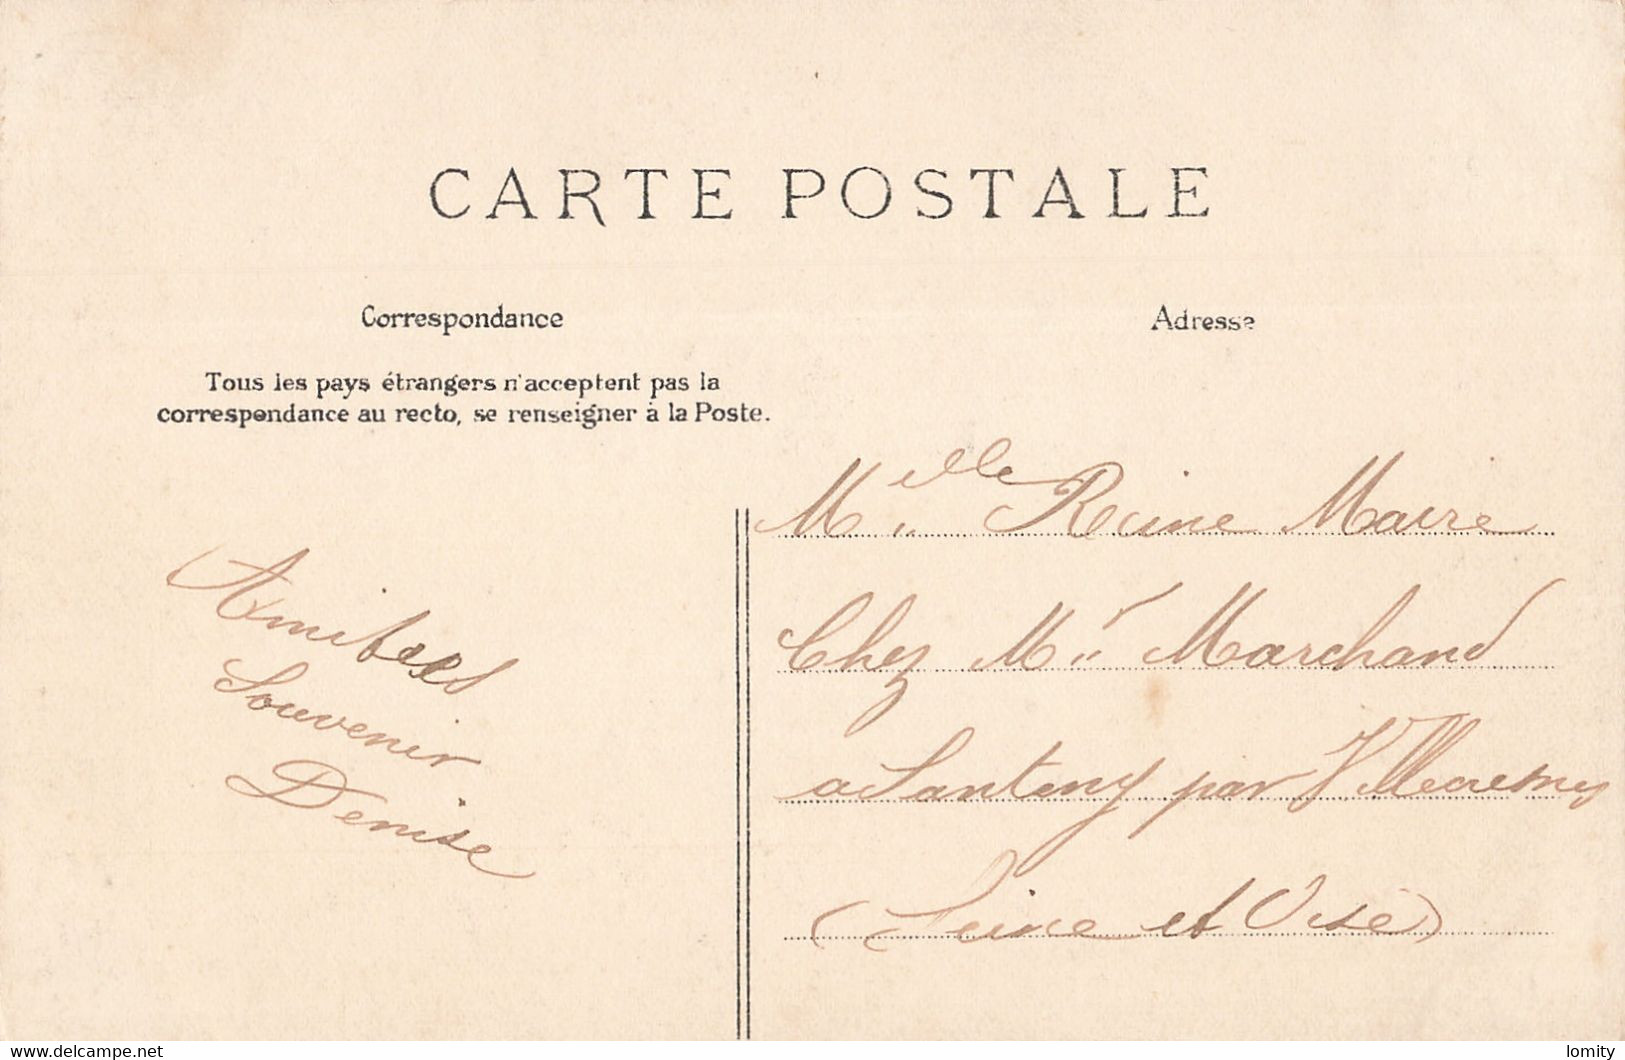 CARTE POSTALE
Correspondance
Adresse
Tous les pays étrangers n'acceptent pas la
correspondance au recto, se renseigner à la Poste.
Melle Reine Maire
Chez Mr Marchand
a Santeny par Villecresnes
(Seine et Oise)
Amitiées
Souvenir
Denise
www.delcampe.net
lomity